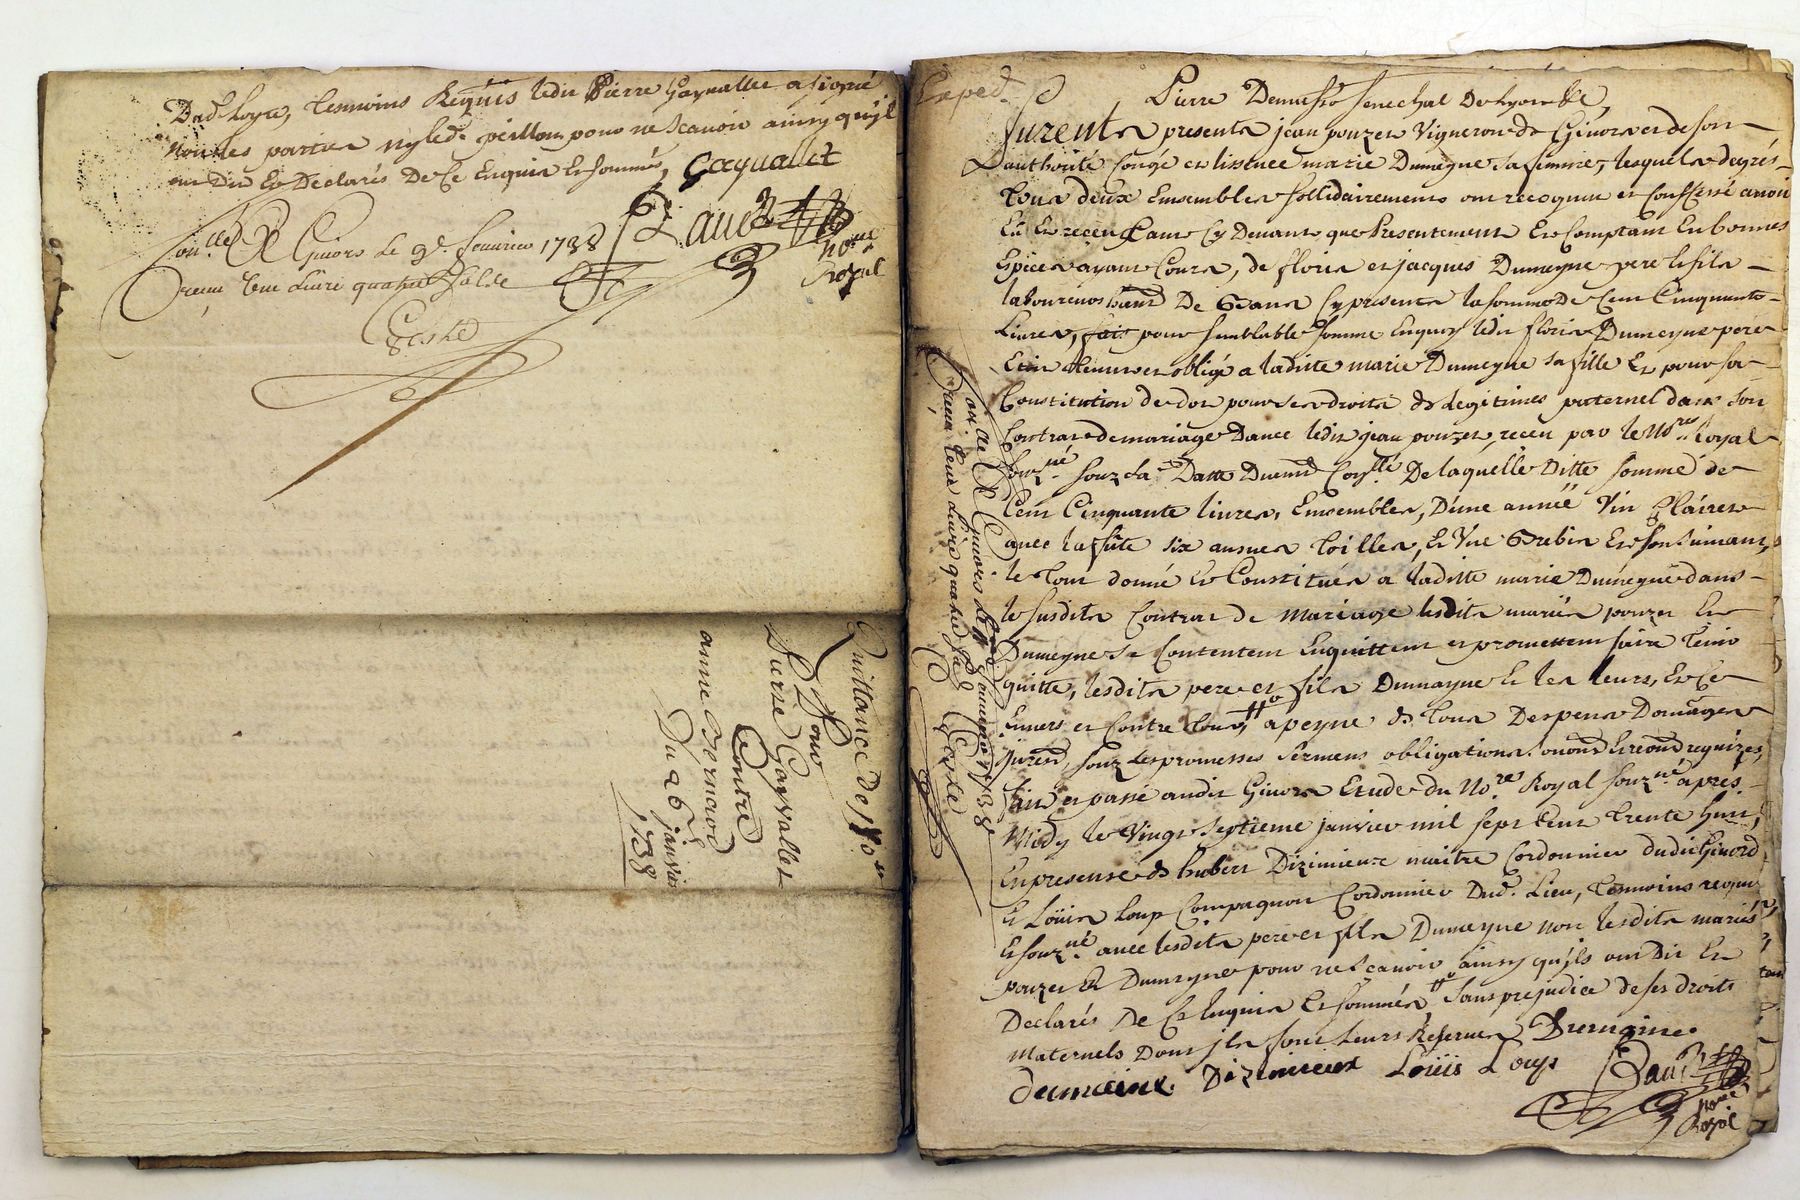 Dud. Loyre, tesmoins Requis ledit Pierre Gayvallet a signé
non les parties ny led. peillon pour ne scavoir ainsy qu'jl
ont Dit Et Declarés De Ce Enquis Et sommés, Gayvallet
Conllé A Givors Le 9e. feuvrier 1738
Receu une Livre quatre sols
Coste
Ravet
Nore
Royal
Quittance De
Pour
Pierre Gayvallet
Contre
anne Bernave
Du 26 janvier
1738
Exped.
Pierre Demasso senechal De Lyon &c,
furent presents jean pouzet Vigneron de Givors et de son
authorité Congé et lissence marie Dumeyne sa femme, lesquels degrés
tous deux Ensembles sollidairements ont recogneu et Confessé avoir
Eu Et receu Tant Cy Devant que Presentement Et Comptant En bonnes
Espices ayant Cours, de floris et jacques Dumeyne pere & fils
laboureurs De Cy presents la somme De Cent Cinquante
Livres, pour semblable somme Enquoy ledit floris Dumeyne pere
Etoit tenu et obligé a laditte marie Dumeyne sa fille Et pour sa
Constitution de dot pour ses droits de Legitimes paternel dans son
Contrat de mariage Davec ledit jean pouzet, receu par le Nore. Royal
souzné. souz sa Datte Duement Conllé De laquelle Ditte somme de
Cent Cinquante livres, Ensembles, D'une année Vin Clairet
avec la fute six aunes toilles, Et Une Et son suivant,
le tout donné Et Constitués a laditte marie Dumeyne dans
le susdits Contrat de Mariage lesdits mariés pouzet Et
Dumeyne se Contentent Enquittent et promettent faire tenir
quitte, lesdits pere et fils Dumayne Et les leurs, Et Ce
Envers et Contre tous, a peyne de tous Despens Domages
jnrest, souz Les promesses sermens obligations Et requizes
fait et passé audit Givors Etude du Nore. Royal souzné. après
Midy le Vingt septieme janvier mil sept Cent trente huit,
En presence de hubert Dizimieux maitre Cordonnier dudit Givord
Et Loüis Loup Compagnon Cordonnier Dud. Lieu, tesmoins requis
Et souzné avec lesdits pere et fils Dumeyne non lesdits mariés
pouzet Et Dumeyne pour ne scavoir ainsy qu'jls ont Dit Et
Declarés De Ce Enquis Et sommés, sans prejudice de ses droits
Maternels Dont jls font Leurs Reserves Dumaine
demaine Dizimieux Loüis Loup
Ravet
Nore
Royal
Conllé A Givors Le feuvrier 1738
Receu une Livre quatre sols Coste